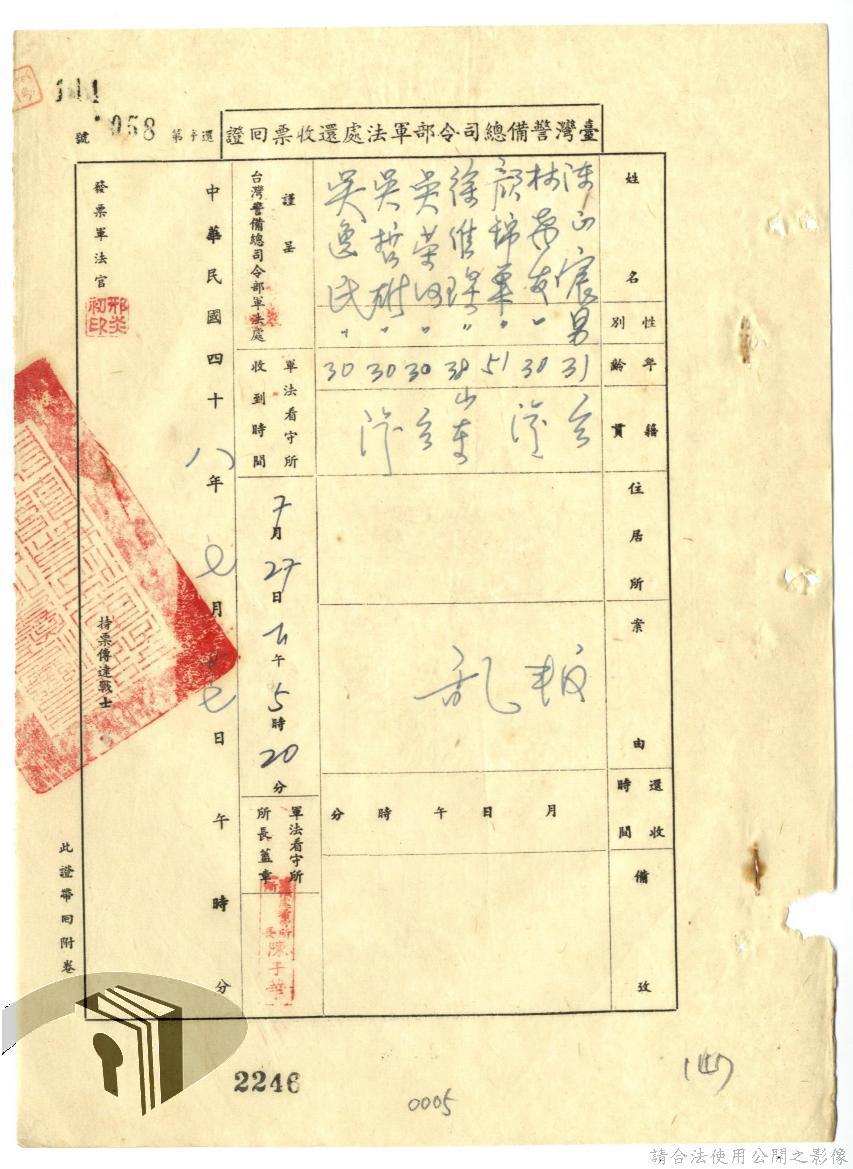 144
還字第 058 號
臺灣警備總司令部軍法處還收票回證
姓名
性別
年齡
籍貫
住居所
案由
還收時間
備攷
陳正宸 男 31 台
林 友 〃 30 台灣
顏錦華 〃 51
徐維琛 〃 38 山東
吳榮河 〃 30 台
吳哲 〃 30 灣
吳逸民 〃 30
叛亂
月 日 午 時 分
謹呈
台灣警備總司令部軍法處
軍法看守所收到時間 7月27日下午5時20分
軍法看守所所長蓋章
陳子華
中華民國四十八年七月廿七日 午 時 分
發票軍法官
邢炎初印
持票傳達戰士
此證帶回附卷
2246
0005
請合法使用公開之影像